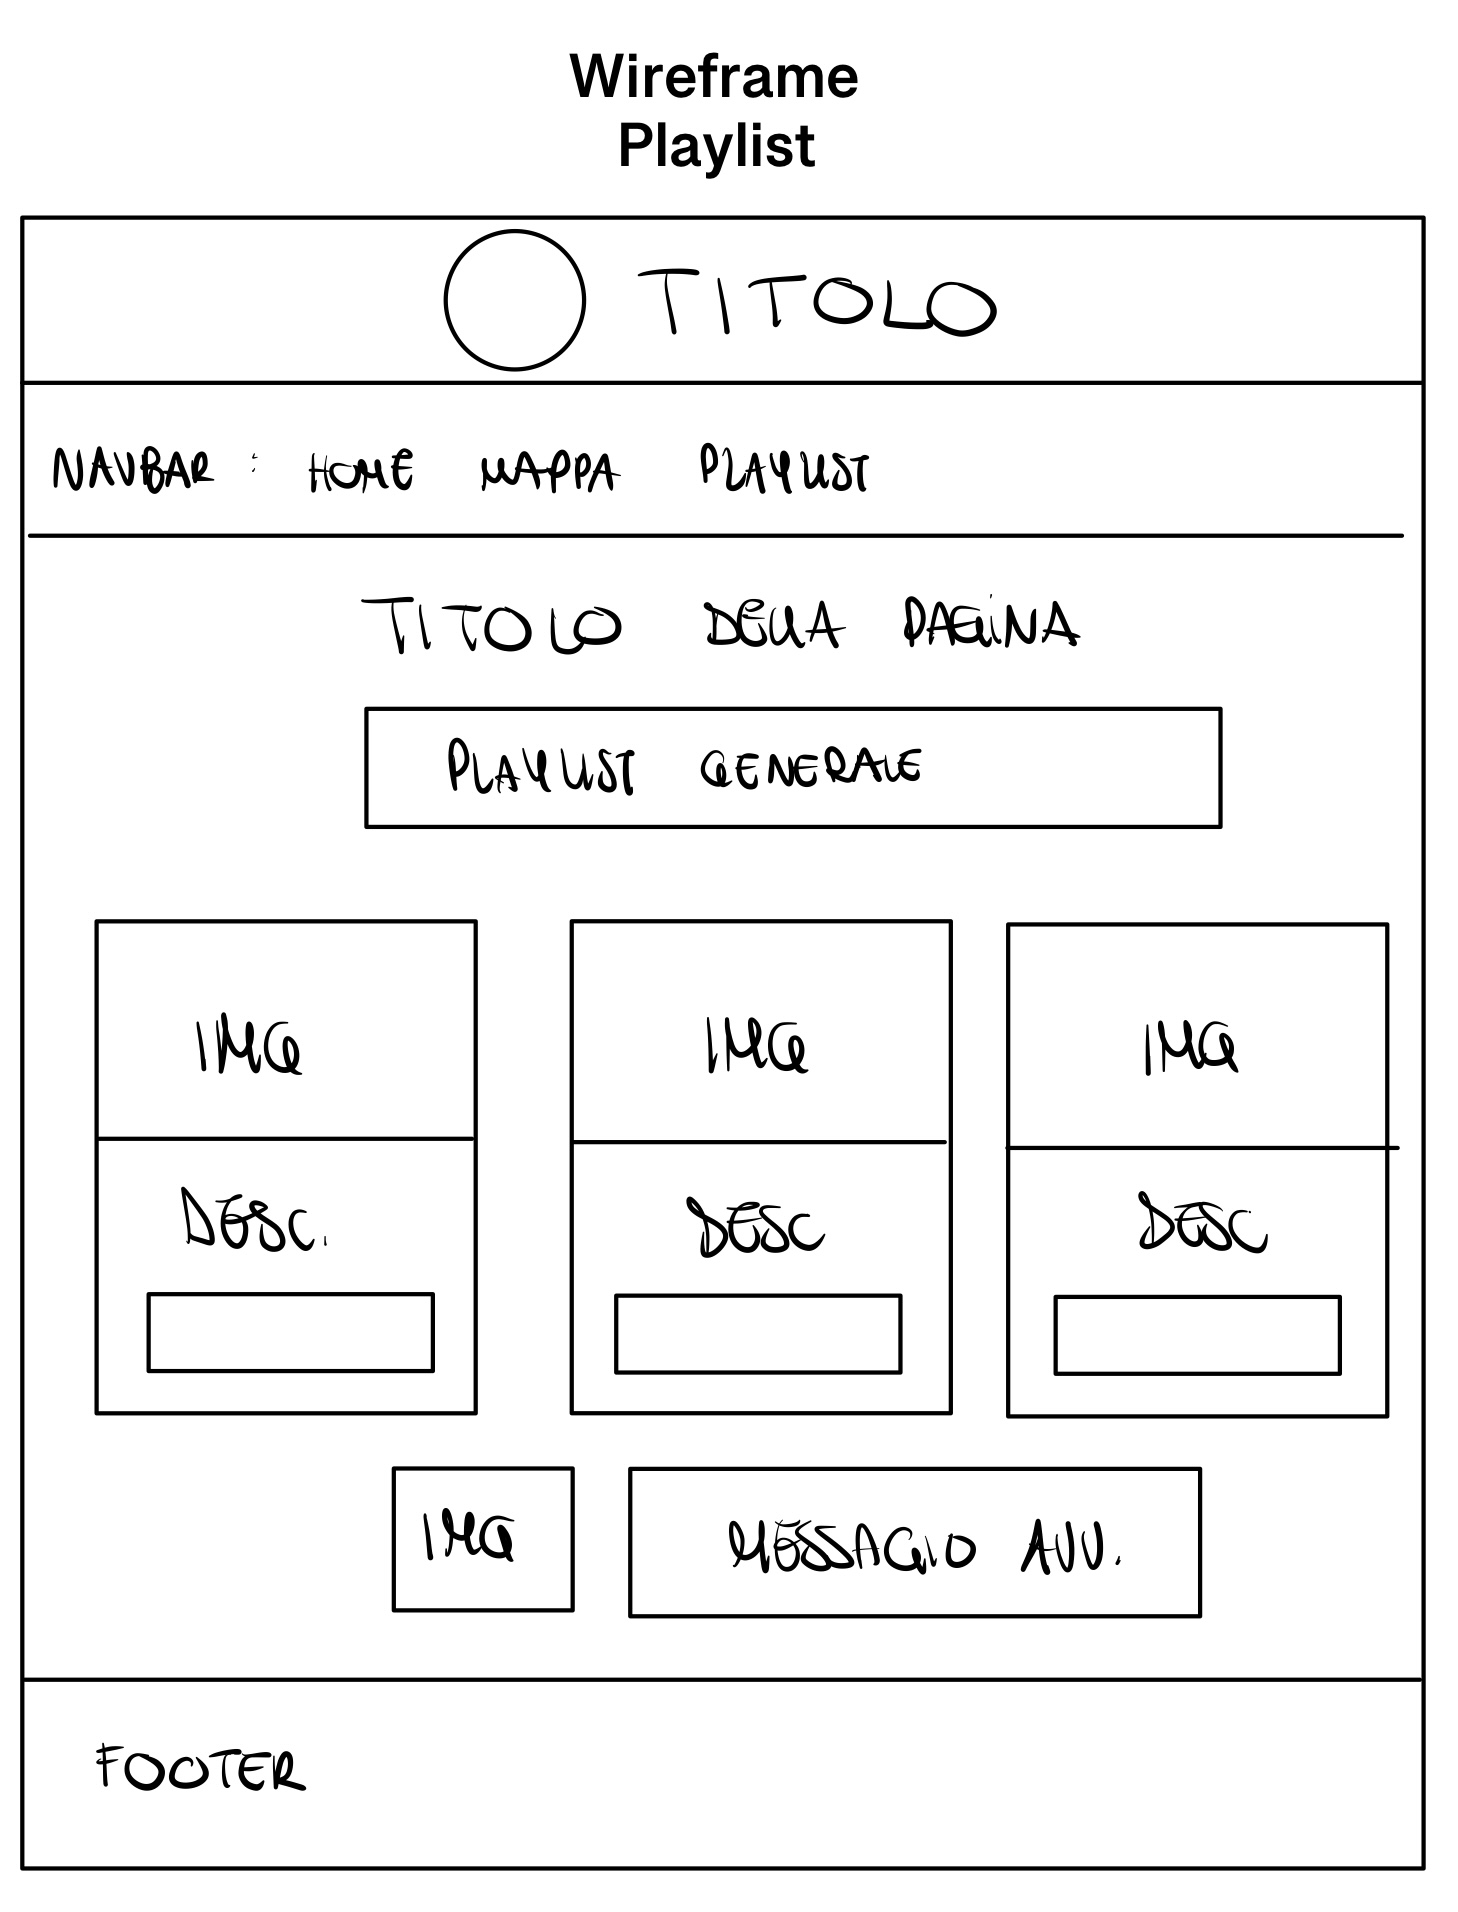 Wireframe
Playlist
TITOLO
NAVBAR : HOME MAPPA PLAYLIST
TITOLO DELLA PAGINA
PLAYLIST GENERALE
IMG IMG IMG
DESC. DESC DESC
IMG MESSAGIO AVV.
FOOTER